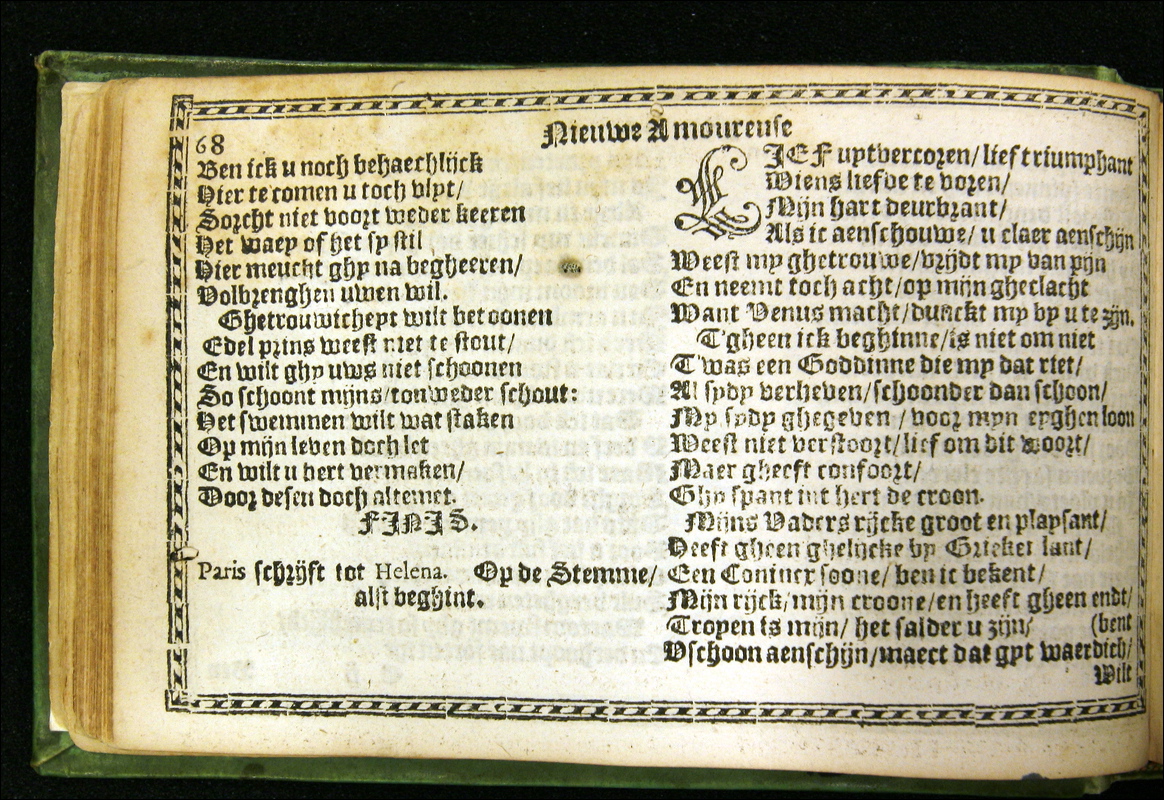 68
Nieuwe Amoureuse
Ben ick u noch behaechlijck
Hier te comen u toch vlyt/
Sorcht niet voort weder keeren
Het waey of het sy stil
Hier meucht ghy na begheeren/
Volbrenghen uwen wil.
Ghetrouwicheyt wilt betoonen
Edel prins weest niet te stout/
En wilt ghy uws niet schoonen
So schoont mijns/tonweder schout:
Het swemmen wilt wat staken
Op mijn leven doch let
En wilt u hert vermaken/
Door desen doch altemet.
FINIS.
Paris schrijft tot Helena. Op de Stemme/
alst beghint.
LIEF uytvercoren/ lief triumphant
Wiens liefde te voren/
Mijn hart deurbrant/
Als ic aenschouwe/ u claer aenschijn
Weest my ghetrouwe/vrijdt my van pijn
En neemt toch acht/op mijn gheclacht
Want Venus macht/dunckt my by u te zijn.
T'gheen ick beghinne/is niet om niet
T'was een Goddinne die my dat riet/
Al sydy verheven/schoonder dan schoon/
My sydy ghegeven/voor myn eyghen loon
Weest niet verstoort/lief om dit woort/
Maer gheeft confoort/
Ghy spant int hert de croon.
Mijns Vaders rijcke groot en playsant/
Heeft gheen ghelijcke by Grieker lant/
Een Conincx soone/ ben ic bekent/
Mijn rijck/mijn croone/en heeft gheen endt/
Troyen is mijn/ het salder u zijn/ (bent
Uschoon aenschijn/maect dat gyt waerdich/
Wilt